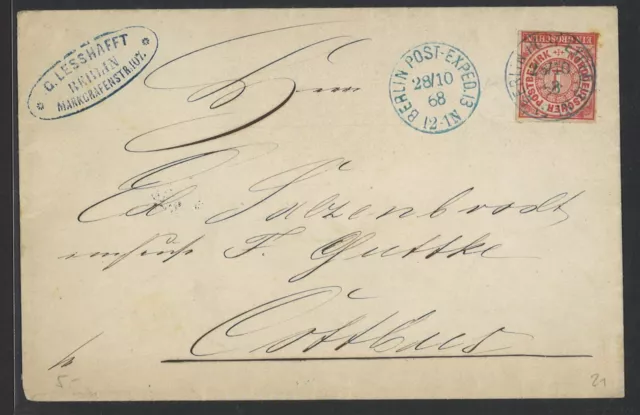 C. LESSHAFFT
BERLIN
MARKGRAFENSTR. 107.
BERLIN POST-EXPED. 13
28/10
68
12-1N
NORDDEUTSCHER POSTBEZIRK
1
EIN GROSCHEN
Ed. Salzenbrodt
F. Guttke
Cottbus
5-
21